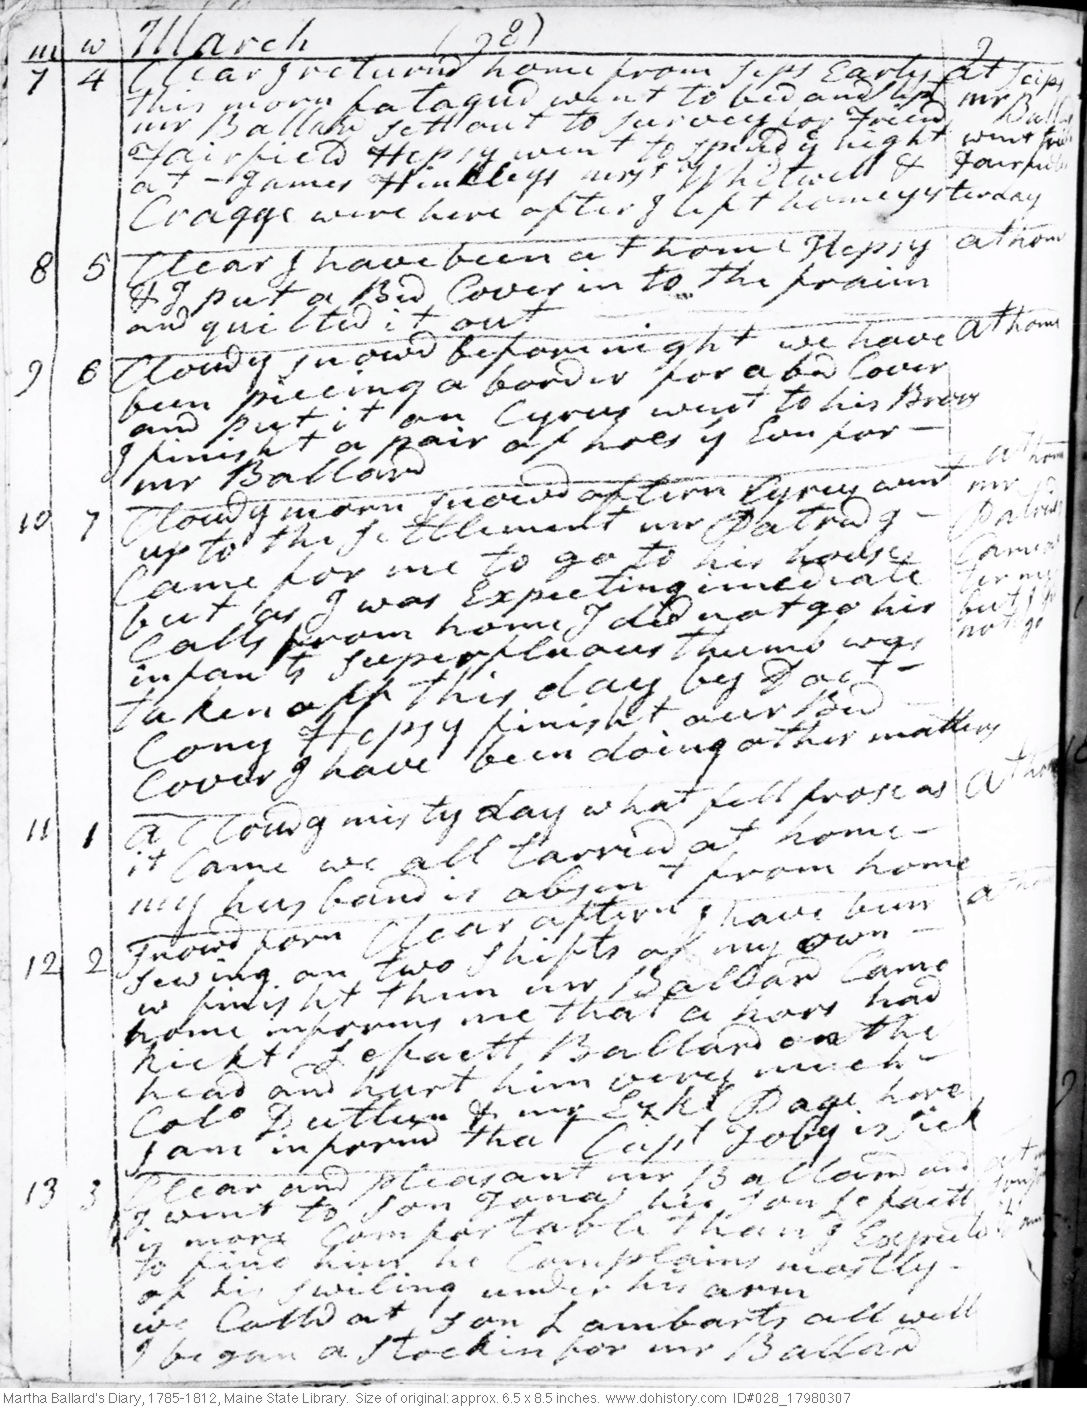 m w March (98)
7 4 Clear I returnd home from Sips Early at Scips
this morn fatagud went to bed and slept mr Balla
mr Ballard sett out to survey for Friend went
Fairfield Hepsy went to spend ye night Fairfield
at - James Hinkleys mrss Whitwell &
Cragge were here after I left home yysterday
8 5 Clear I have been at home Hepsy at hom
& I put a Bed Cover in to the fraim
and quilted it out
9 6 Cloudy snowd before night we have at home
been pieceing a border for a bed Cover
and put it on Cyrus went to his Broys
I finisht a pair of hoes ys Evn for -
mr Ballard
10 7 Cloudy morn snowd aftern Cyrus went at hom
up to the settlement mr Patridg - mr
Came for me to go to his house Patridg
but as I was Expecting imediate Came
Calls from home I did not go his for me
infants superfluous thumb was but I
taken off this day by Doct - not go
Cony Hepsy finisht our Bed -
Cover I have been doing other matters
11 1 a Cloudy misty day what fell frose as at hom
it Came we all tarried at home -
my husband is absent from home
12 2 Snowd forn Clear aftern I have been at hom
sewing on two shifts of my own -
w finisht them mr Ballard Came
home informs me that a hors had
kickt Lefaett Ballard on the
head and hurt him very much -
Colo Dutten & mr Ezkl Page here
I am informd that Capt Toby is sick
13 3 Clear and pleasant mr Ballard and at
I went to son Jonas his son Lefaett
is more Comfortable than I Expected
to find him he Complains mostly -
of his swiling under his arm
we Calld at son Lambarts all well
I began a Stockin for mr Ballard
Martha Ballard's Diary, 1785-1812, Maine State Library. Size of original: approx. 6.5 x 8.5 inches. www.dohistory.com ID#028_17980307